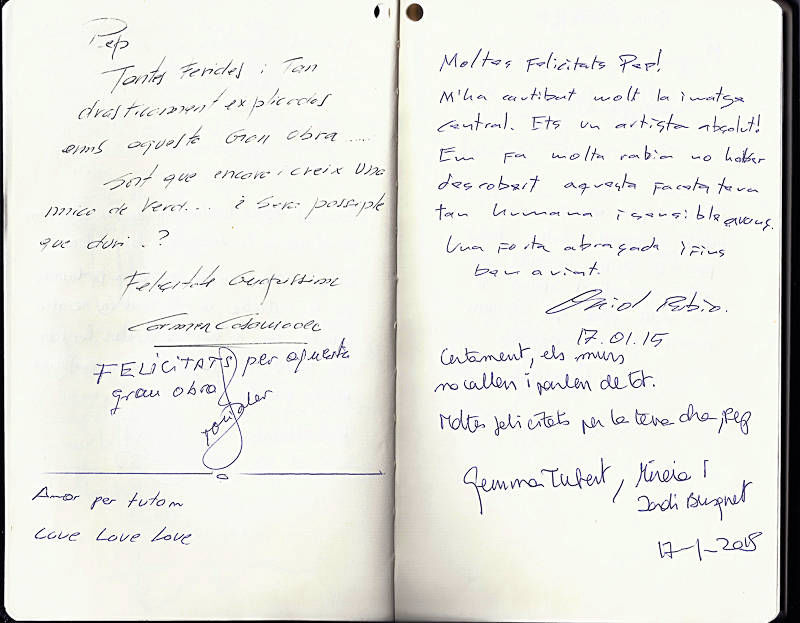 Pep
Tantes Ferides i Tan
drasticament explicades
amb aquesta Gran obra....
Sort que encara i creix una
mica de Verd... i Sera possible
que duri..?
Felicitats
Carmen Casamada
FELICITATS per aquesta
gran obra
Amor per tutom
Love Love Love
Moltes Felicitats Pep!
M'ha cautibat molt la imatge
central. Ets un artista absolut!
Em fa molta rabia no haber
descobert aquesta faceta teva
tan humana i sensible
Una forta abraçada i fins
ben aviat.
Oriol Rubio.
17.01.15
Certament, els murs
no callen i parlen de tot.
Moltes felicitats per la teva obra, Pep
Gemma Tubert, Mireia i
Jordi Busquet
17-1-2015